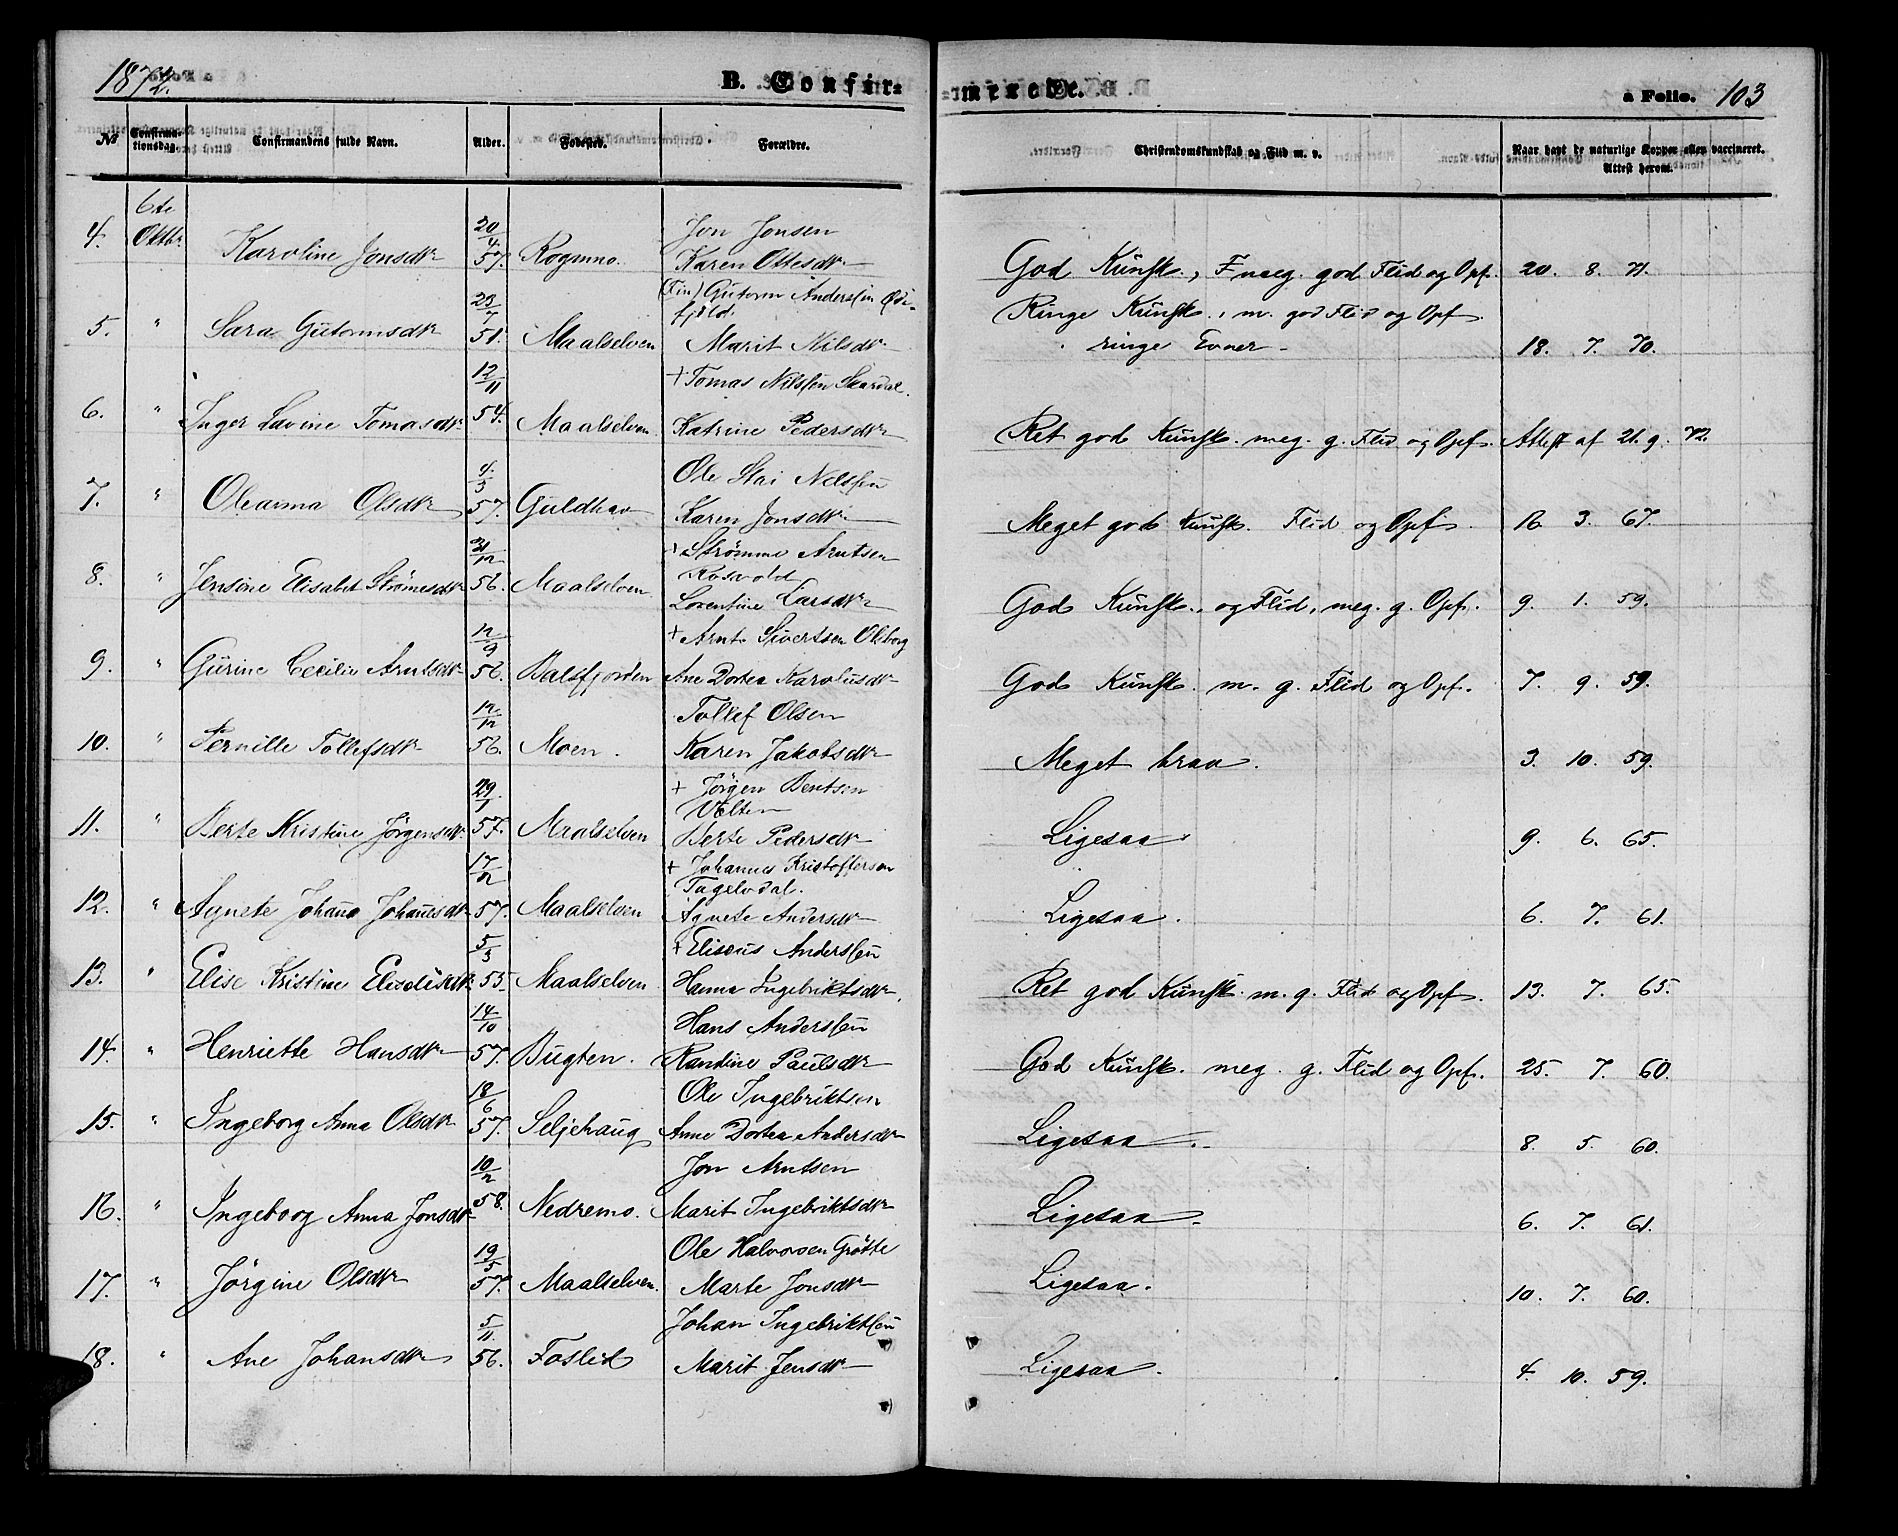 1872.
B. Confir-
merede.
a Folio. 103
No
Confirma-
tionsdag.
Confirmandens fulde Navn.
Alder.
Fødested.
Forældre.
Christendomskundskab og Flid m. v.
Naar havt de naturlige Kopper eller vaccineret.
Attest herom.
4. 6te Oktbr. Karoline Jonsdtr 20/4 57. Rognmo. Jon Jonsen
Karen Ottesdtr
God Kundsk., meg. god Flid og Opf. 20. 8. 71.
5. " Sara Gutormsdtr 51. Maalselven (Fin) Gutorm Anderssen
fjeld.
Marit Nilsdtr
Ringe Kundsk., m. god Flid og Opf.
ringe Evner 18. 7. 70.
6. " Inger Lavine Tomasdtr 12/11 54. Maalselven + Tomas Nilssen Skardal.
Katrine Pedersdtr
Ret god Kundsk. meg. g. Flid og Opf. Attest af 21. 9. 72.
7. " Oleanna Olsdtr 4/3 57. Guldhav Ole Stai Nilssen
Karen Jonsdtr
Meget god Kundsk. Flid og Opf. 12 3. 67.
8. " Jensine Elisabet Strømesdtr 31/12 56. Maalselven + Strømme Arntsen
Rosvold
Lorentine Larsdtr
God Kundsk., og Flid, meg. g. Opf. 9. 1. 59.
9. " Gurine Cecilie Arntsdtr 12/9 56. Balsfjorden + Arnt Sivertsen Olsborg
Ane Dortea Karolusdtr
God Kundsk. m. g. Flid og Opf. 7. 9. 59.
10. " Pernille Tollefsdtr 12/12 56. Moen. Tollef Olsen
Karen Jakobsdtr
Meget brav. 3. 10. 59.
11. " Berte Kristine Jørgensdtr 29/1 57. Maalselven + Jørgen Bentsen
Volten
Berte Pedersdtr
Ligesaa 9. 6. 65.
12. " Agnete Johana Johanesdtr 17/12 57. Maalselven + Johannes Kristoffersen
Fagelvdal.
Agnete Andersdtr
Ligesaa. 6. 7. 61.
13. " Elise Kristine Eliseusdtr 5/3 55. Maalselven + Eliseus Anderssen
Hanna Ingebriktsdtr.
Ret god Kundsk. m. g. Flid og Opf. 13. 7. 65.
14. " Henriette Hansdtr 14/10 57. Bugten. Hans Anderssen
Randine Paulsdtr
God Kundsk. meg. g. Flid og Opf. 25. 7. 60.
15. " Ingeborg Anna Olsdtr 18/6 57. Seljehaug Ole Ingebriktsen
Anne Dortea Andersdtr
Ligesaa. 8. 5. 60.
16. " Ingeborg Anna Jonsdtr 10/2 58. Nedremo. Jon Arntsen
Marit Ingebriktsdtr
Ligesaa. 6. 7. 61.
17. " Jørgine Olsdtr 19/5 57. Maalselven. Ole Halvorsen Grøtte
Marte Jonsdtr
Ligesaa. 10. 7. 60.
18. " Ane Johansdtr 5/11. 56. Foslid Johan Ingebriktssen
Marit Jensdtr
Ligesaa. 4. 10. 59.